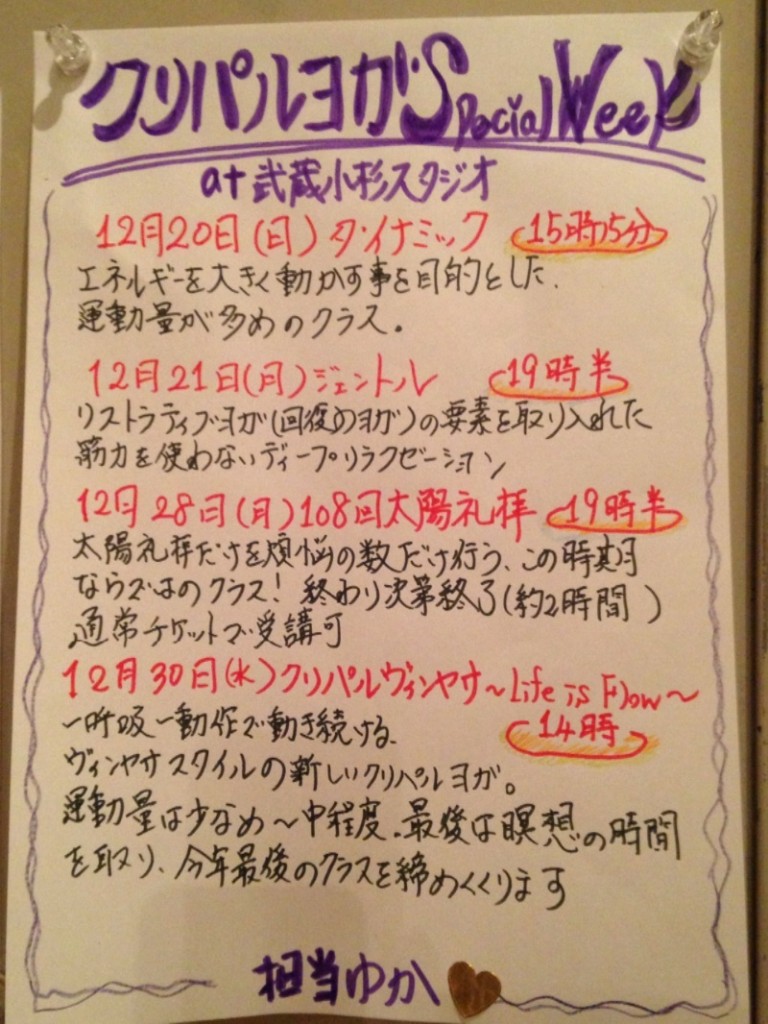 クリパルヨガSpecial Week
at 武蔵小杉スタジオ
12月20日(日)ダイナミック 15時15分
エネルギーを大きく動かす事を目的とした、
運動量が多めのクラス。
12月21日(月)ジェントル 19時半
リストラティブヨガ(回復のヨガ)の要素を取り入れた
筋力を使わないディープリラクゼーション
12月28日(月)108回太陽礼拝 19時半
太陽礼拝だけを煩悩の数だけ行う、この時期
ならではのクラス! 終わり次第終了(約2時間)
通常チケットで受講可
12月30日(水)クリパルヴィンヤサ〜Life is Flow〜
一呼吸一動作で動き続ける、 14時
ヴィンヤサスタイルの新しいクリパルヨガ。
運動量は少なめ〜中程度。最後は瞑想の時間
を取り、今年最後のクラスを締めくくります
担当ゆか